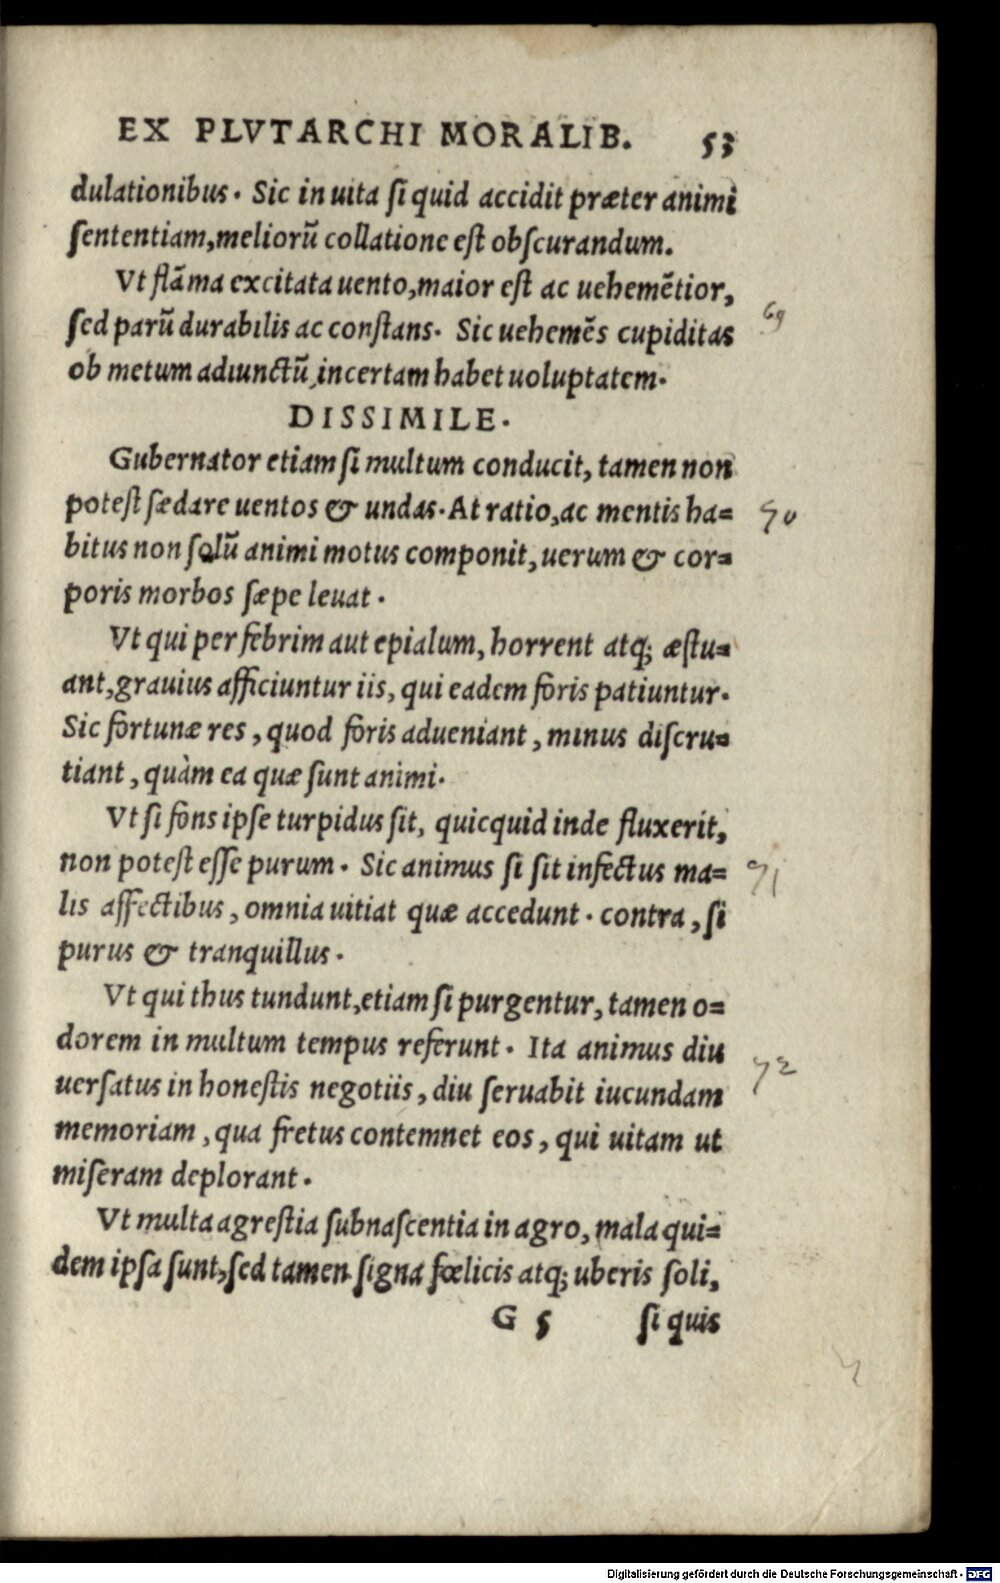 EX PLVTARCHI MORALIB. 53
dulationibus. Sic in uita si quid accidit præter animi
sententiam, meliorũ collatione est obscurandum.
Vt flãma excitata uento, maior est ac uehemẽtior,
69
sed parũ durabilis ac constans. Sic uehemẽs cupiditas
ob metum adiunctũ, incertam habet uoluptatem.
DISSIMILE.
Gubernator etiam si multum conducit, tamen non
potest sædare uentos & undas. At ratio, ac mentis ha=
70
bitus non solũ animi motus componit, uerum & cor=
poris morbos sæpe leuat.
Vt qui per febrim aut epialum, horrent atq; æstu=
ant, grauius afficiuntur iis, qui eadem foris patiuntur.
Sic fortunæ res, quod foris adueniant, minus discru=
tiant, quàm ea quæ sunt animi.
Vt si fons ipse turpidus sit, quicquid inde fluxerit,
non potest esse purum. Sic animus si sit infectus ma=
71
lis affectibus, omnia uitiat quæ accedunt. contra, si
purus & tranquillus.
Vt qui thus tundunt, etiam si purgentur, tamen o=
dorem in multum tempus referunt. Ita animus diu
72
uersatus in honestis negotiis, diu seruabit iucundam
memoriam, qua fretus contemnet eos, qui uitam ut
miseram deplorant.
Vt multa agrestia subnascentia in agro, mala qui=
dem ipsa sunt, sed tamen signa fœlicis atq; uberis soli,
G 5 si quis
Digitalisierung gefördert durch die Deutsche Forschungsgemeinschaft - DFG